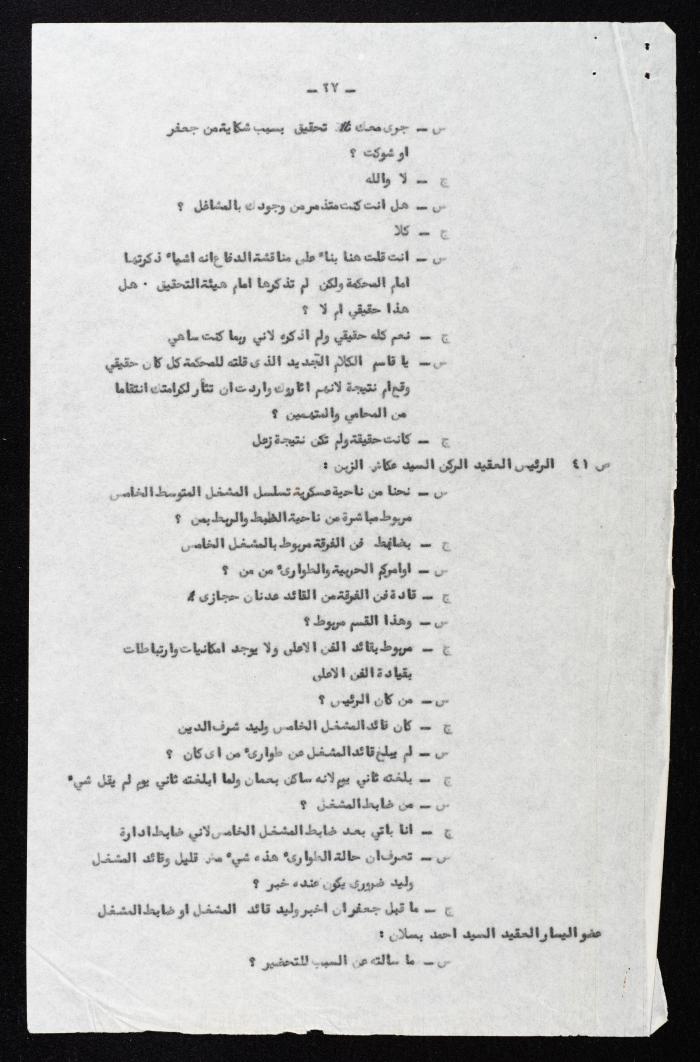 ـ ٢٧ ـ
س ـ جرى معك تحقيق بسبب شكاية من جعفر
او شوكت ؟
ج ـ لا والله
س ـ هل انت كنت متذمر من وجودك بالمشاغل ؟
ج ـ كلا
س ـ انت قلت هنا بناء على مناقشة الدفاع انه اشياء ذكرتها
امام المحكمة ولكن لم تذكرها امام هيئة التحقيق ٠ هل
هذا حقيقي ام لا ؟
ج ـ نعم كله حقيقي ولم اذكره لاني ربما كنت ساهي
س ـ يا قاسم الكلام الجديد الذى قلته للمحكمة كل كان حقيقي
وقع ام نتيجة لانهم اثاروك واردت ان تثأر لكرامتك انتقاما
من المحامي والمتهمين ؟
ج ـ كانت حقيقة ولم تكن نتيجة زعل
س ٤١ الرئيس العقيد الركن السيد عكاش الزبن :
س ـ نحنا من ناحية عسكرية تسلسل المشغل المتوسط الخامس
مربوط مباشرة من ناحية الظبط والربط بمن ؟
ج ـ بضابط فن الفرقة مربوط بالمشغل الخامس
س ـ اوامركم الحربية والطوارىء من من ؟
ج ـ قادة فن الفرقة من القائد عدنان حجازى
س ـ وهذا القسم مربوط ؟
ج ـ مربوط بقائد الفن الاعلى ولا يوجد امكانيات وارتباطات
بقيادة الفن الاعلى
س ـ من كان الرئيس ؟
ج ـ كان قائد المشغل الخامس وليد شرف الدين
س ـ لم يبلغ قائد المشغل عن طوارىء من اى كان ؟
ج ـ بلغته ثاني يوم لانه ساكن بعمان ولما ابلغته ثاني يوم لم يقل شيء
س ـ من ضابط المشغل ؟
ج ـ انا باتي بعد ضابط المشغل الخامس لاني ضابط ادارة
س ـ تعرف ان حالة الطوارىء هذه شيء مش قليل وقائد المشغل
وليد ضرورى يكون عنده خبر ؟
ج ـ ما قبل جعفر ان اخبر وليد قائد المشغل او ضابط المشغل
عضو اليسار العقيد السيد احمد بسلان :
س ـ ما سالته عن السبب للتحضير ؟